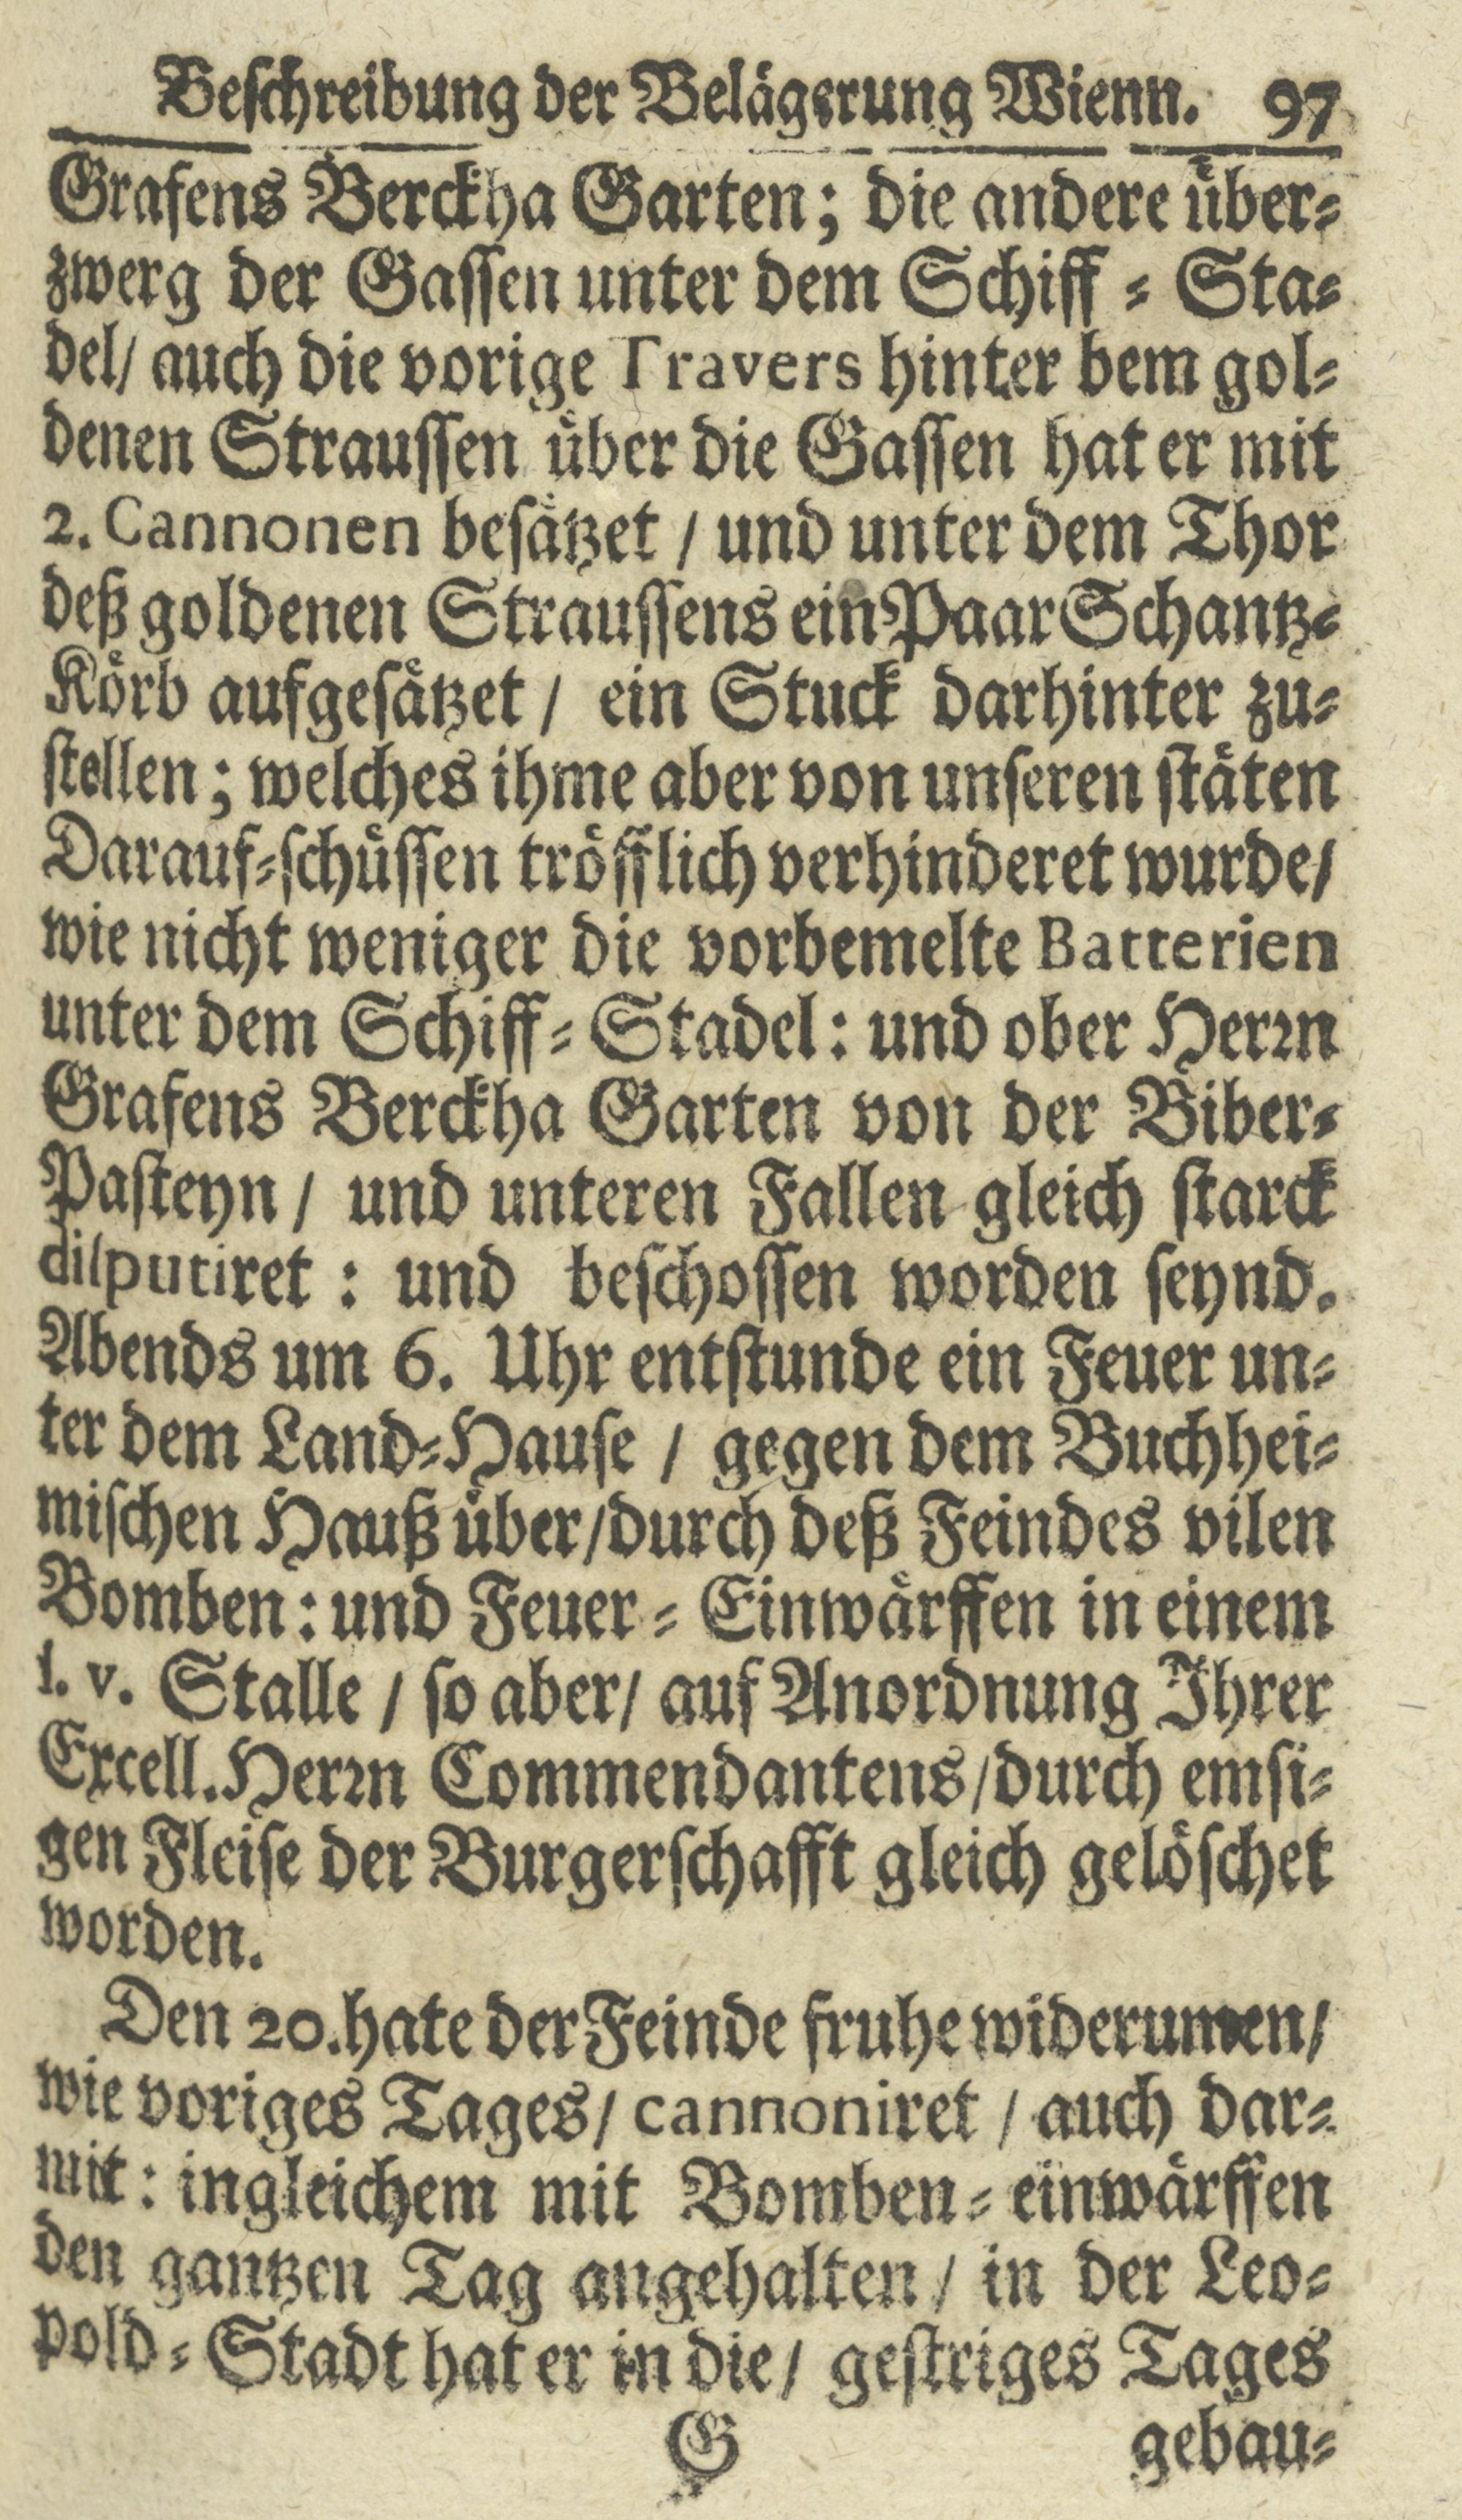 Beschreibung der Belägerung Wienn. 97
Grafens Berckha Garten; die andere über-
zwerg der Gassen unter dem Schiff - Sta-
del/ auch die vorige Travers hinter bem gol-
denen Straussen über die Gassen hat er mit
2. Cannonen besätzet / und unter dem Thor
deß goldenen Straussens ein Paar Schantz-
Körb aufgesätzet / ein Stuck darhinter zu-
stellen; welches ihme aber von unseren stäten
Darauf-schüssen tröfflich verhinderet wurde/
wie nicht weniger die vorbemelte Batterien
unter dem Schiff - Stadel: und ober Herrn
Grafens Berckha Garten von der Biber-
Pasteyn / und unteren Fallen gleich starck
disputiret : und beschossen worden seynd.
Abends um 6. Uhr entstunde ein Feuer un-
ter dem Land-Hause / gegen dem Buchhei-
mischen Hauß über/durch deß Feindes vilen
Bomben: und Feuer - Einwärffen in einem
s. v. Stalle / so aber/ auf Anordnung Ihrer
Excell. Herrn Commendantens/durch emsi-
gen Fleise der Burgerschafft gleich gelöschet
worden.
Den 20. hate der Feinde fruhe widerumen/
wie voriges Tages/ cannoniret / auch dar-
mit: ingleichem mit Bomben - einwärffen
den gantzen Tag angehalten / in der Leo-
pold - Stadt hat er in die/ gestriges Tages
G gebau-